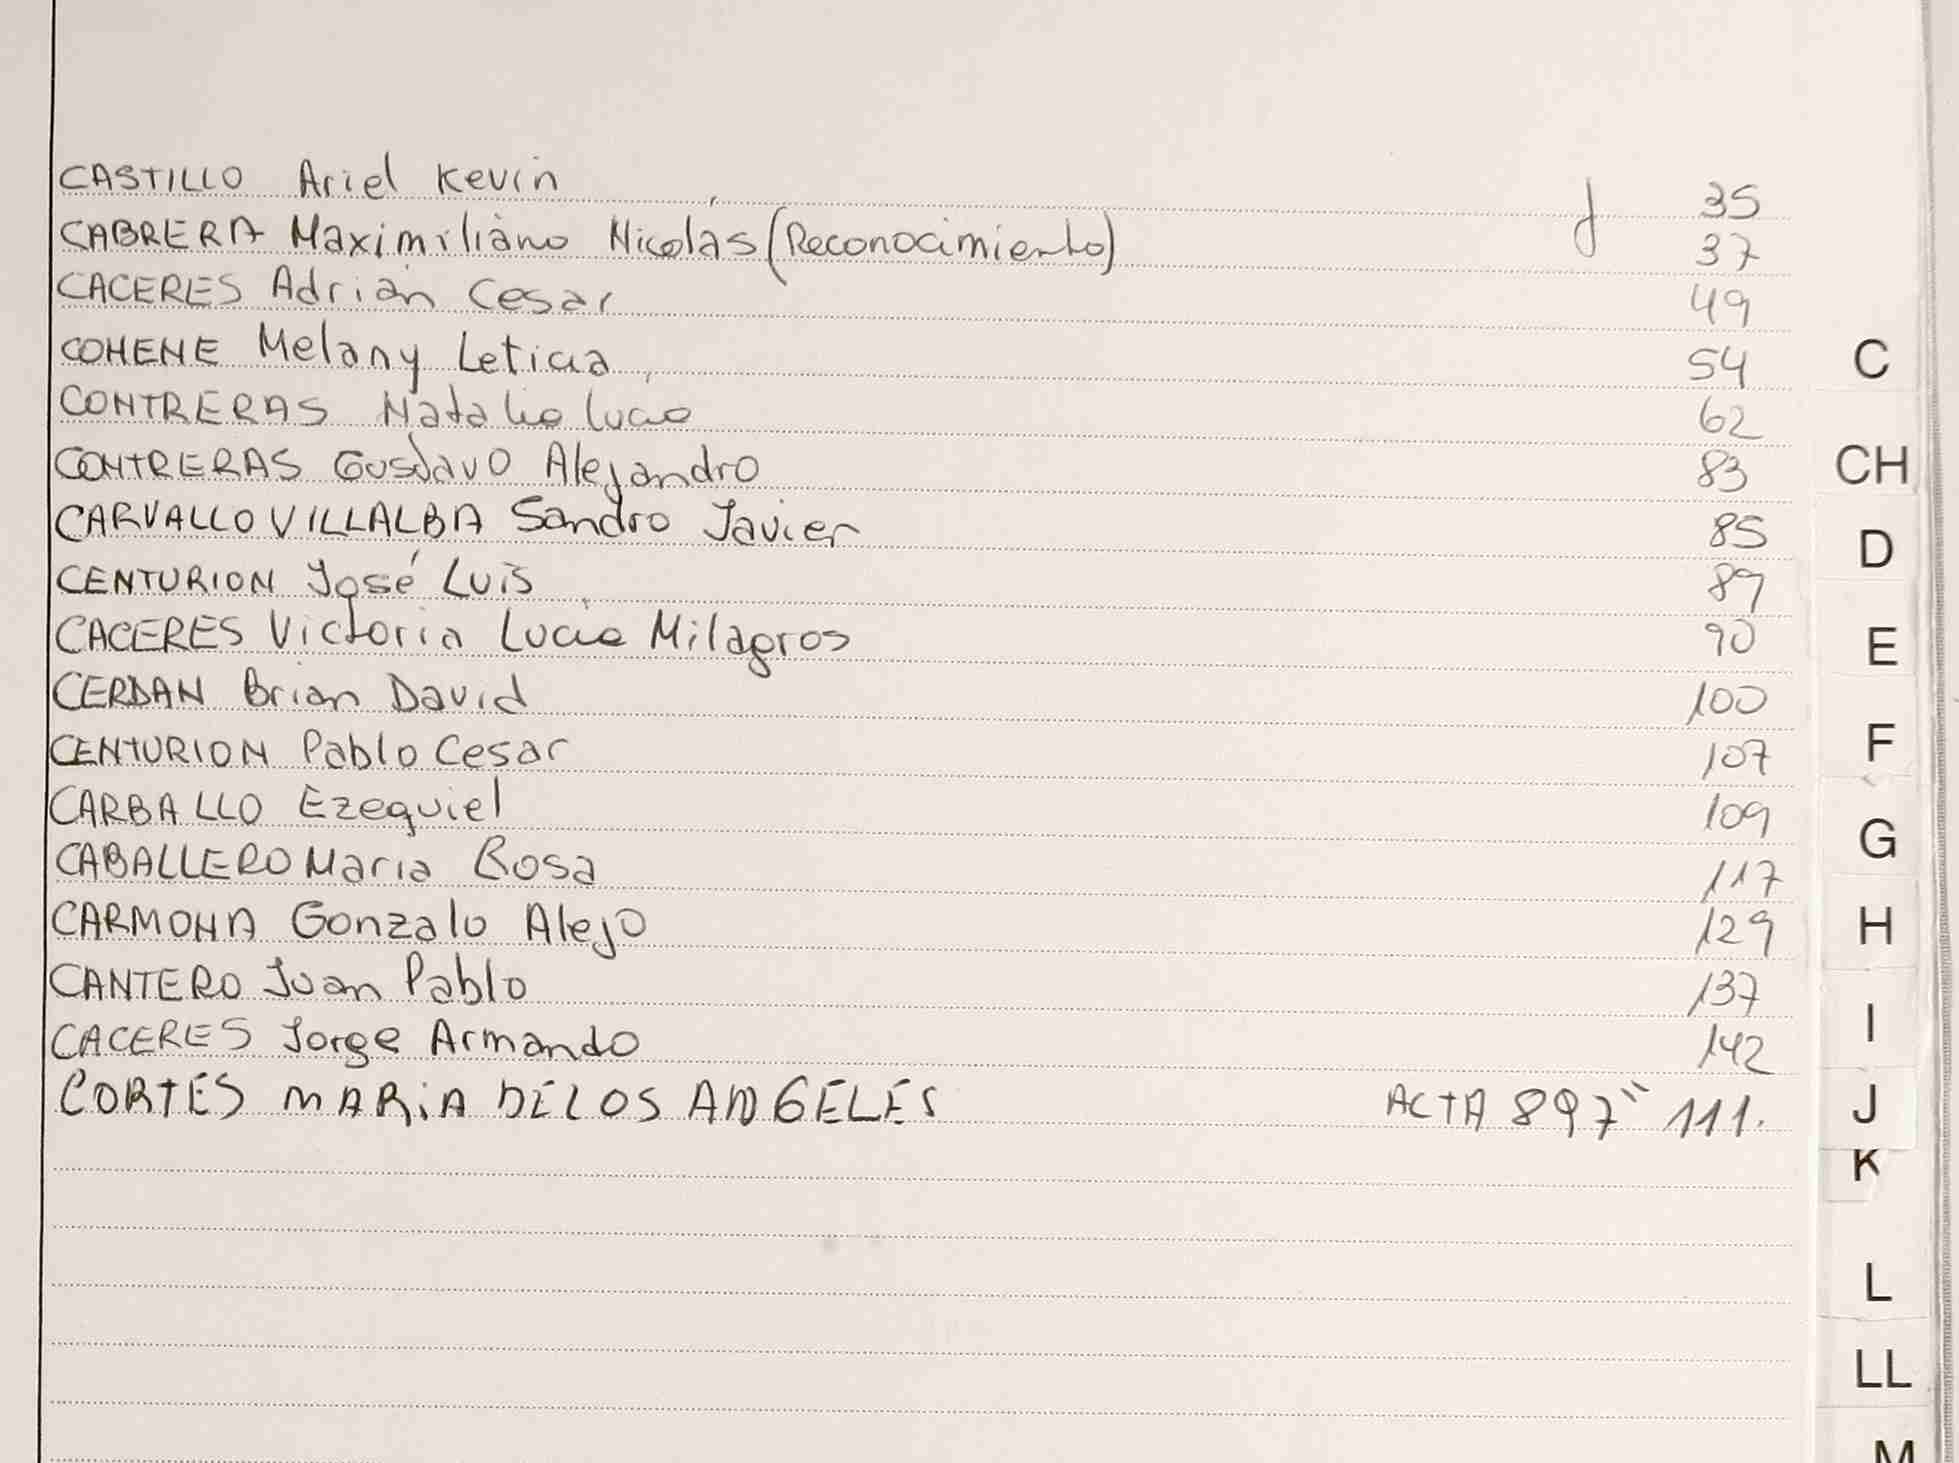 CASTILLO Ariel Kevin 35
CABRERA Maximiliano Nicolás (Reconocimiento) 37
CACERES Adrián Cesar 49
COHENE Melany Leticia 54 C
CONTRERAS Natalia Lucia 62
CONTRERAS Gustavo Alejandro 83 CH
CARVALLO VILLALBA Sandro Javier 85 D
CENTURION José Luis 89
CACERES Victoria Lucia Milagros 90 E
CERDAN Brian David 100
CENTURION Pablo Cesar 107 F
CARBALLO Ezequiel 109 G
CABALLERO Maria Rosa 117
CARMONA Gonzalo Alejo 129 H
CANTERO Juan Pablo 137
CACERES Jorge Armando 142 I
CORTÉS MARIA DE LOS ANGELES ACTA 897" 111. J
K
L
LL
M